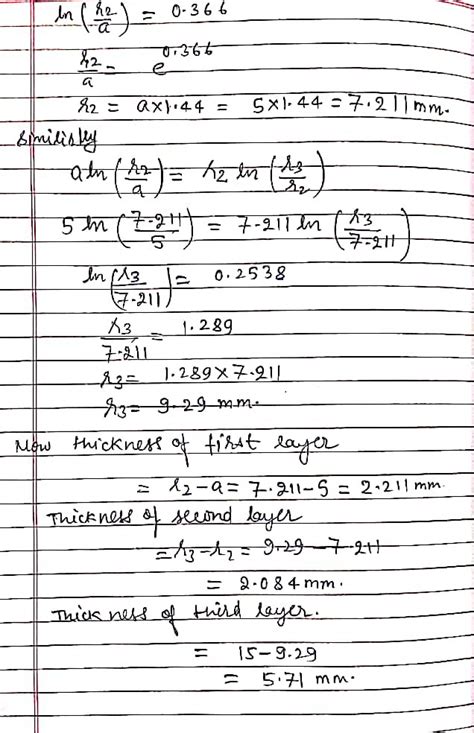 ln (r2/a) = 0.366
r2/a = e^0.366
r2 = a×1.44 = 5×1.44 = 7.211 mm.
Similisly
a ln (r2/a) = r2 ln (r3/r2)
5 ln (7.211/5) = 7.211 ln (r3/7.211)
ln (r3/7.211) = 0.2538
r3/7.211 = 1.289
r3 = 1.289×7.211
r3 = 9.29 mm.
Now thickness of first layer
= r2-a = 7.211-5 = 2.211 mm.
Thickness of second layer
= r3-r2 = 9.29-7.211
= 2.084 mm.
Thickness of third layer.
= 15-9.29
= 5.71 mm.